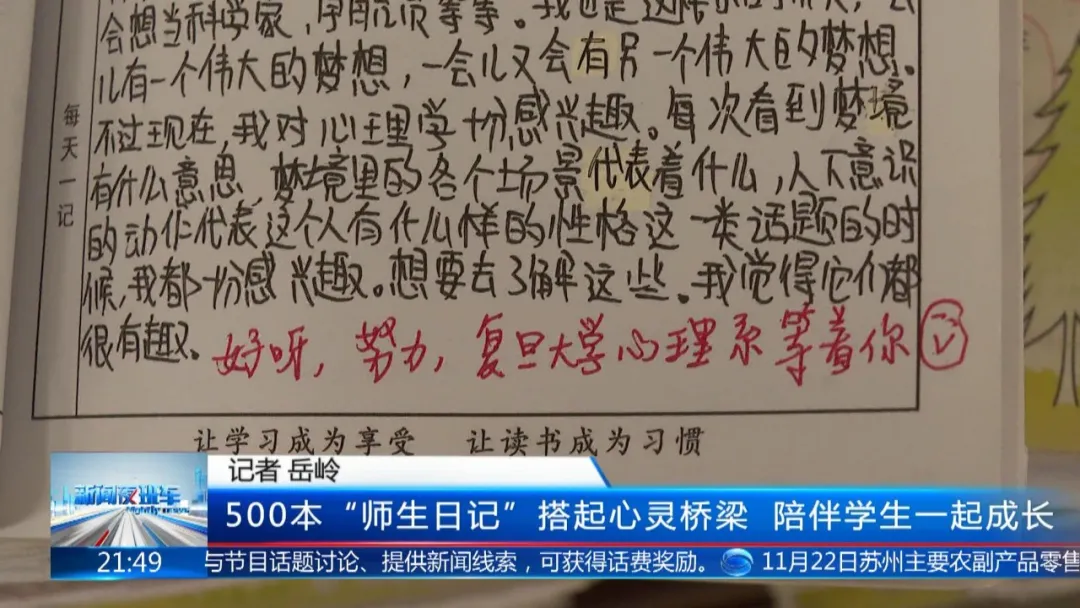 会想当科学家,宇航员等等。我也是这样
儿有一个伟大的梦想,一会儿又会有另一个伟大的梦想。
不过现在,我对心理学十分感兴趣。每次看到梦境
有什么意思,梦境里的各个场景代表着什么,人下意识
的动作代表这个人有什么样的性格这一类话题的时
候,我都十分感兴趣。想要去了解这些。我觉得它们都
很有趣。
好呀,努力,复旦大学心理系等着你
每天一记
让学习成为享受 让读书成为习惯
记者 岳岭
新闻夜班车
Nightly news
500本“师生日记”搭起心灵桥梁 陪伴学生一起成长
21:49
与节目话题讨论、提供新闻线索,可获得话费奖励。 11月22日苏州主要农副产品零售